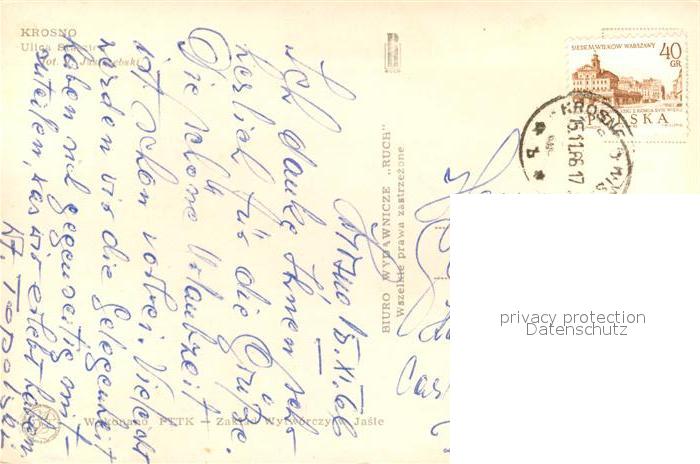 KROSNO
Ulica
Fot.
Krosno 15.XI.66
Ich danke Ihnen sehr
herzlich für die Grüße.
Die schöne Urlaubzeit
ist schon vorbei. Vieleicht
werden wir die Gelegenheit
haben sich gegenseitig mit-
zuteilen, was wir erlebt haben.
BIURO WYDAWNICZE „RUCH”
Wszelkie prawa zastrzeżone
Wykonano PTTK — Zakład Wytwórczy w Jaśle
RUCH
SIEDEM WIEKÓW WARSZAWY
40
GR
POLSKA
KROSNO
15.11.66.17
privacy protection
Datenschutz